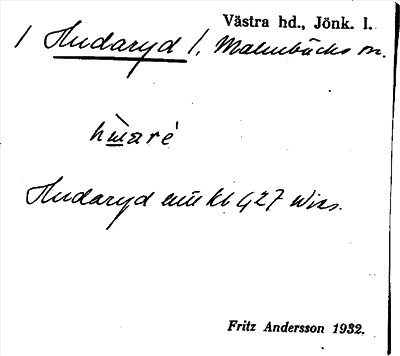 Västra hd., Jönk. l.
/ Hudaryd /, Malmbäcks sn.
Hudaryd enl kb 427 Wirs.
Fritz Andersson 1932.